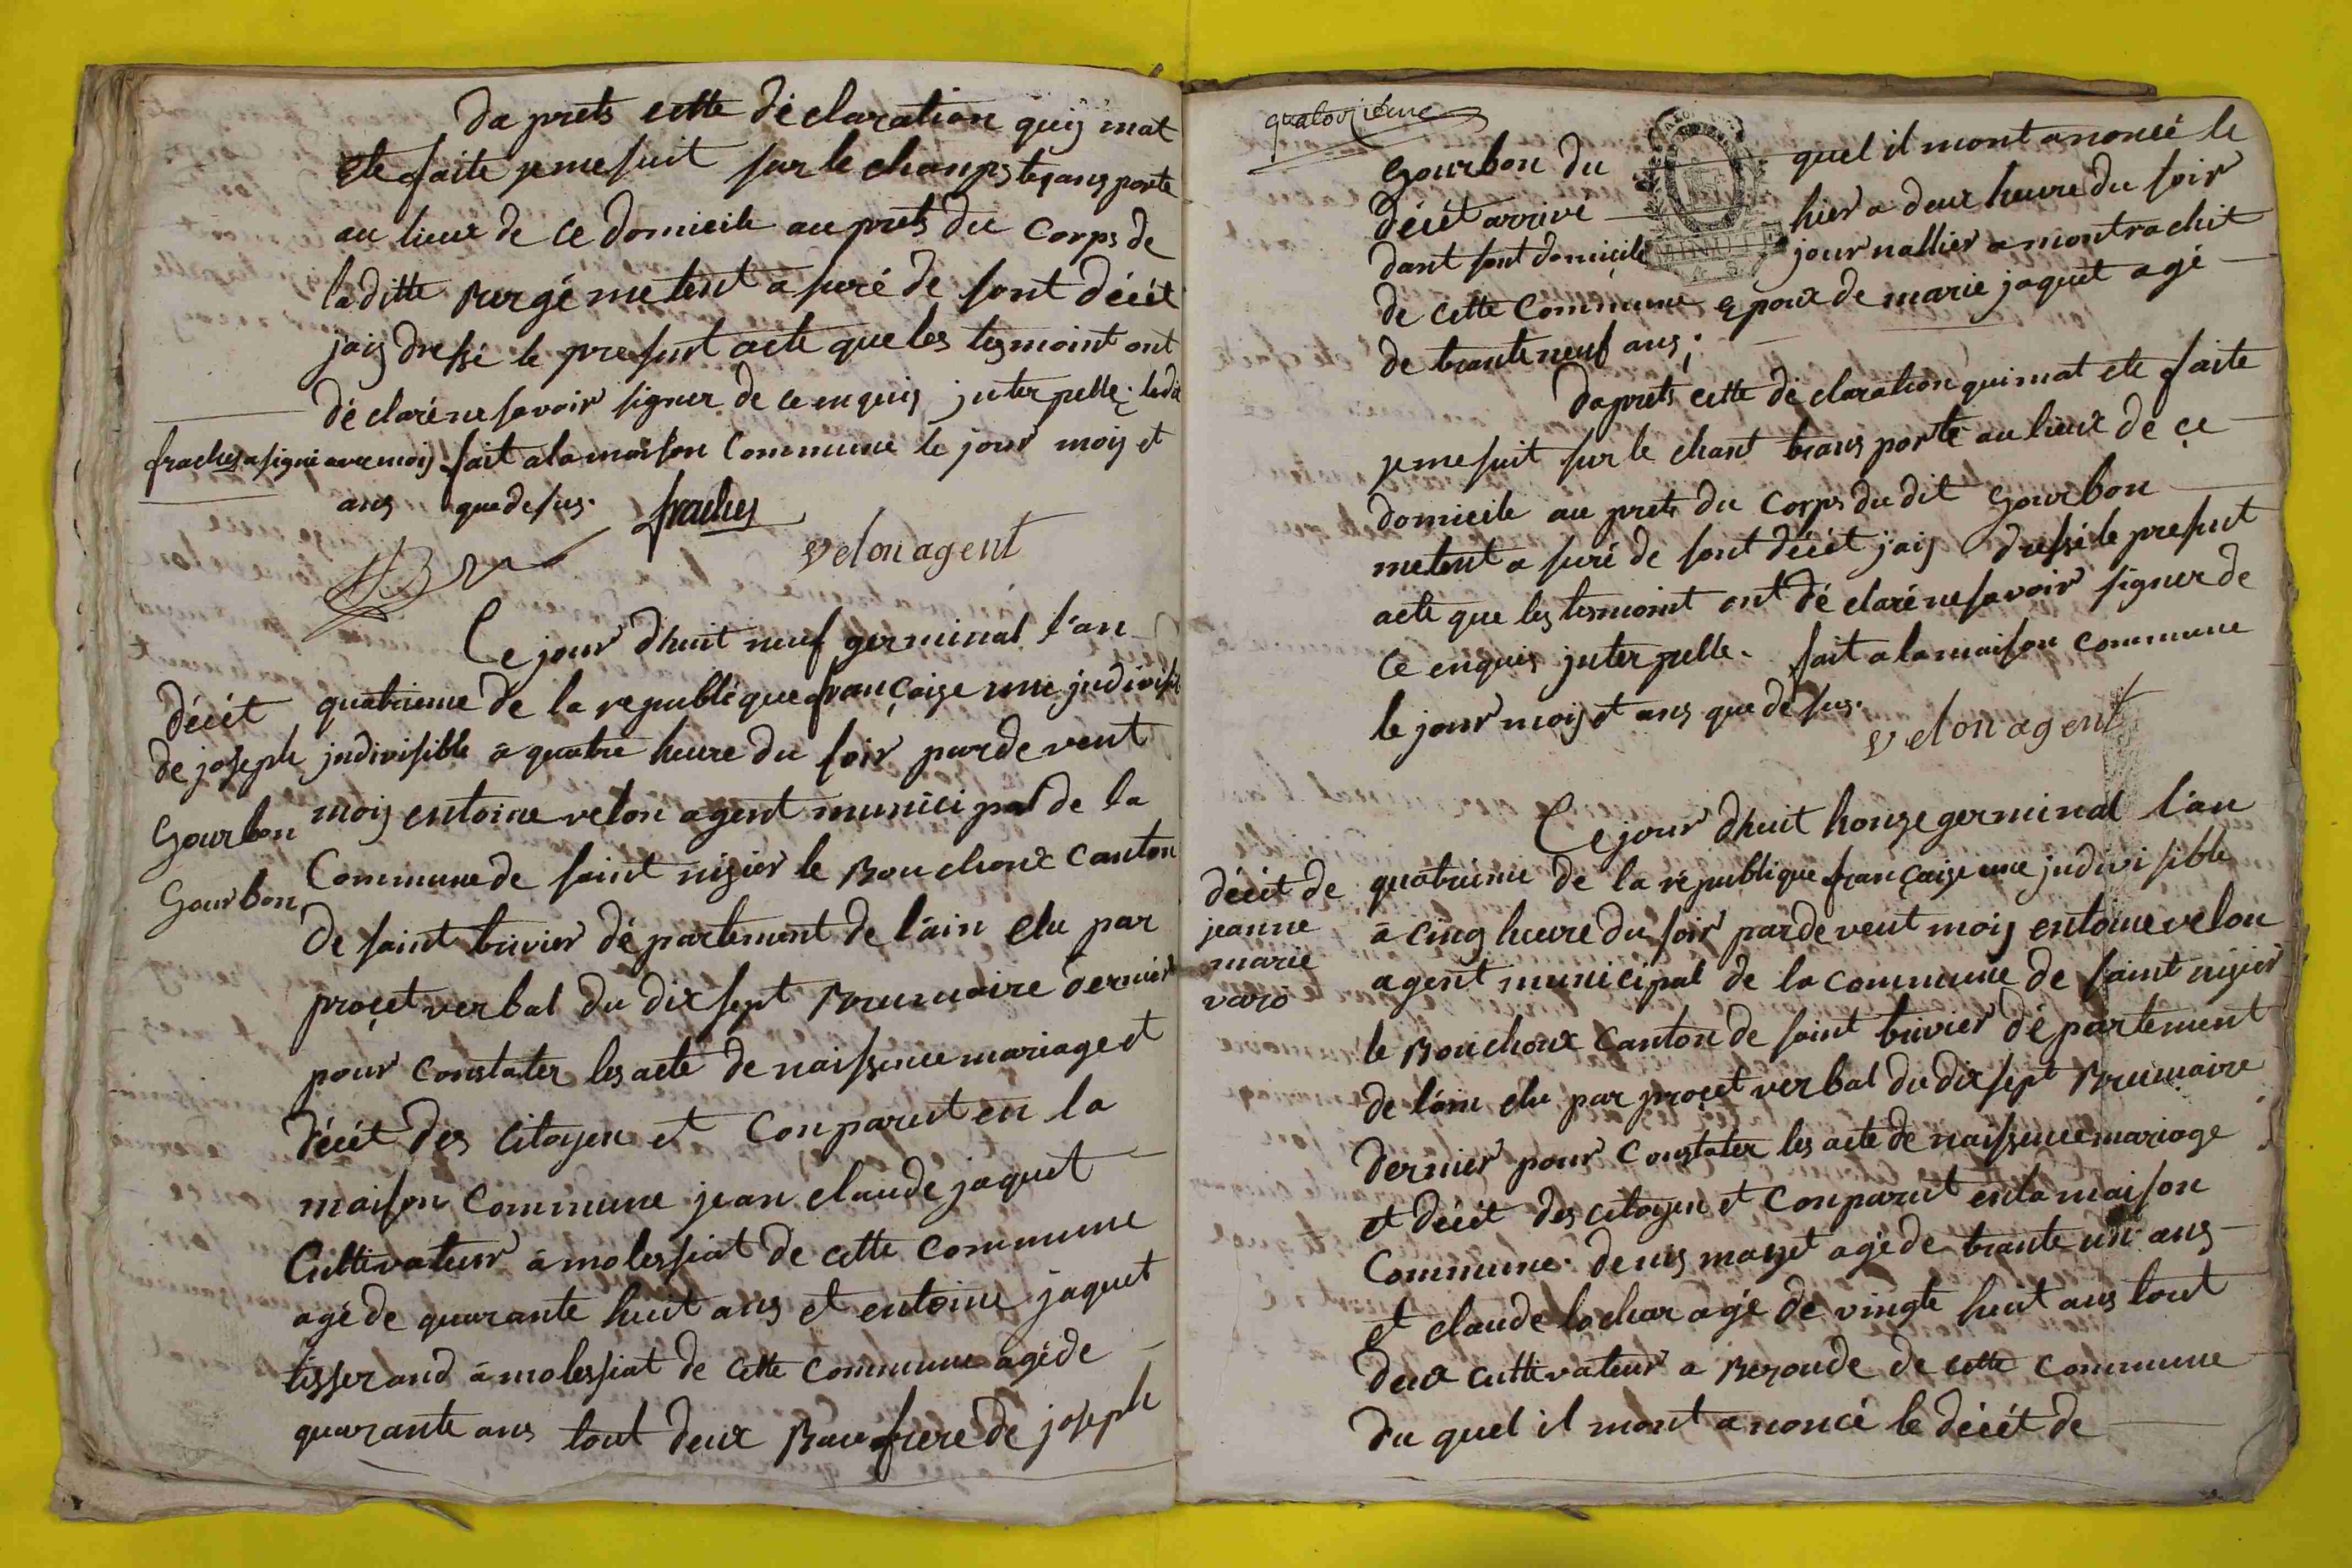 da prets cette déclaration quij mat
ete faite je me suit sur le champs tesans porte
au lieux de ce domicile au prets du corps de
laditte Burgé metent a suré de sont décét
jais dressé le present acte que les tesmoint ont
déclaré ne savoir signer de ce enquis juterpelle. ledit
frachey a signé avec moij fait a la maison Commune le jour mois et
ans que desus.
frachey
velon agent
Ce jour dhuit neuf germinal l'an
quatrieme de la republique françaize une judivisib
décét
de joseph
Gourbon
Gourbon
judivisible à quatre heure du soir pardevent
moij entoine velon agent municipal de la
Commune de saint nizier le Bouchoux Canton
de saint trivier département de l'ain elu par
proçet verbal du dix sept Brumaire dernier
pour Constater les acte de naissence mariage et
décét des Citoyen et Conparut en la
maison Commune jean claude jaquet
Cultivateur à molessiat de cette Commune
agé de quarante huit ans et entoine jaquet
tisserand à molessiat de cette Commune agé de
quarante ans tout deux Baufrere de joseph
quatorzieme
Gourbon du quel il mont anoncé le
décét arrivé hier a deux heure du soir
MINUTE
dant sont domicile journallier a montrachit
de cette Commune epoux de marie jaquet agé
de trante neuf ans;
daprets cette déclaration qui mat ete faite
je me suit sur le chant trans porté au lieux de ce
domicile au prets du Corps du dit Gourbon
metent a suré de sont décét jais dressé le present
acte que les tesmoint ont déclaré ne savoir signer de
Ce enquis juterpelle. fait a la maison commune
le jour mois et ans que desus.
velon agent
Ce jour dhuit honze germinal l'an
décét de
jeanne
marie
varo
quatrieme de la republique françaize une judivisible
à cinq heure du soir pardevent moij entoine velon
agent municipal de la commune de saint nizier
le Bouchoux Canton de saint trivier département
de l'ain elu par proçet verbal du dix sept Brumaire
dernier pour Constater les acte de naissence mariage
et décét des citoyen et Conparut en la maison
Commune. denis mazet agé de trante un ans
et claude lochar agé de vingte huit ans tout
deux cultivateur a Beronde de cette commune
du quel il mont anoncé le décét de